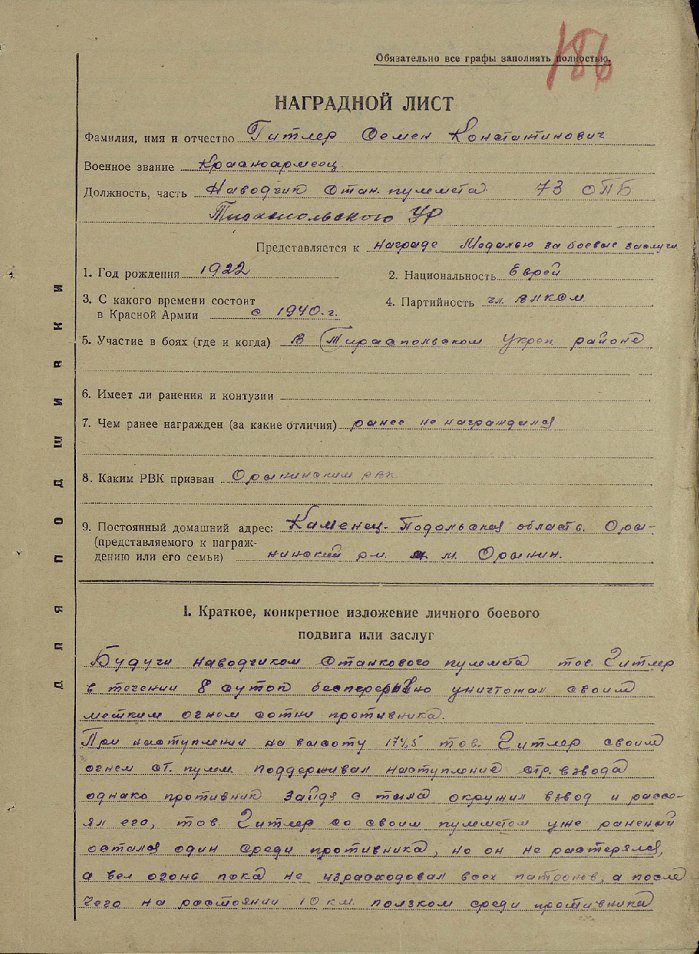 186
Обязательно все графы заполнять полностью.
НАГРАДНОЙ ЛИСТ
Фамилия, имя и отчество Гитлер Семен Константинович
Военное звание Красноармеец
Должность, часть Наводчик Стан. пулемета 73 ОПБ
Тираспольского УР
Представляется к награде Медалью за боевые заслуги
1. Год рождения 1922 2. Национальность Еврей
3. С какого времени состоит
в Красной Армии с 1940 г. 4. Партийность чл. ВЛКСМ
5. Участие в боях (где и когда) В Тираспольском Укреп районе
6. Имеет ли ранения и контузии
7. Чем ранее награжден (за какие отличия) ранее не награждался
8. Каким РВК призван Орынинским рвк
9. Постоянный домашний адрес: Каменец-Подольская область. Оры-
(представляемого к награж-
дению или его семьи) нинский рн. м. Орынин.
ДЛЯ ПОДШИВКИ
I. Краткое, конкретное изложение личного боевого
подвига или заслуг
Будучи наводчиком Станкового пулемета тов. Гитлер
в течении 8 суток бесперерывно уничтожал своим
метким огнем сотни противника.
При наступлении на высоту 174,5 тов. Гитлер своим
огнем ст. пулем. поддерживал наступление стр. взвода
однако противник зайдя с тыла окружил взвод и рассе-
ял его, тов. Гитлер со своим пулеметом уже раненый
остался один среди противника, но он не растерялся,
а вел огонь пока не израсходовал всех патронов, а после
чего на растоянии 10 км. ползком среди противника